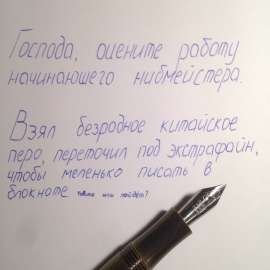 Господа, оцените работу
начинаюшего нибмейстера.
Взял безродное китайское
перо, переточил под экстрафайн,
чтобы меленько писать в
блокноте
или пойдёт?